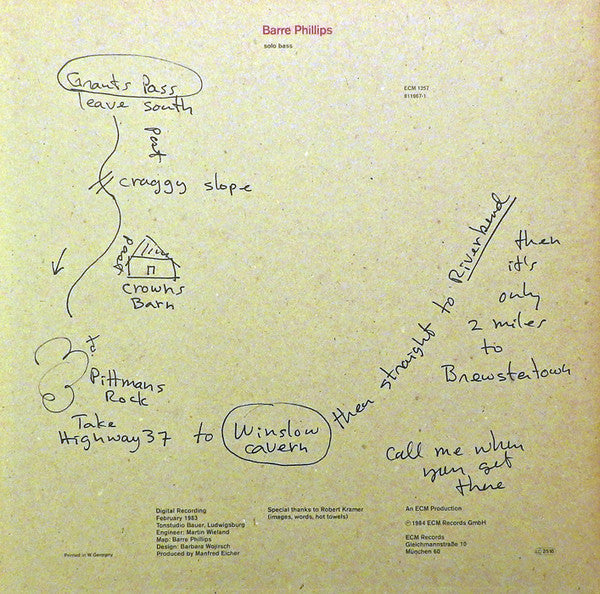 Barre Phillips
solo bass
ECM 1257
811667-1
Grants Pass
leave south
past
craggy slope
past
Crowns
Barn
to
Pittmans
Rock
Take
Highway 37 to Winslow
cavern
then straight to Riverbend
then
it's
only
2 miles
to
Brewstertown
call me when
you get
there
Digital Recording
February 1983
Tonstudio Bauer, Ludwigsburg
Engineer: Martin Wieland
Map: Barre Phillips
Design: Barbara Wojirsch
Produced by Manfred Eicher
Special thanks to Robert Kramer
(images, words, hot towels)
An ECM Production
℗ 1984 ECM Records GmbH
ECM Records
Gleichmannstraße 10
München 60
Printed in W. Germany
LC 2516